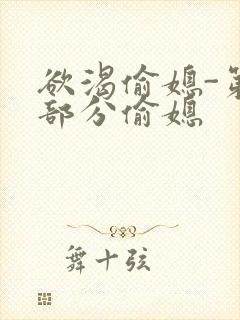 欲渴偷媳-第
部分偷媳
舞十弦